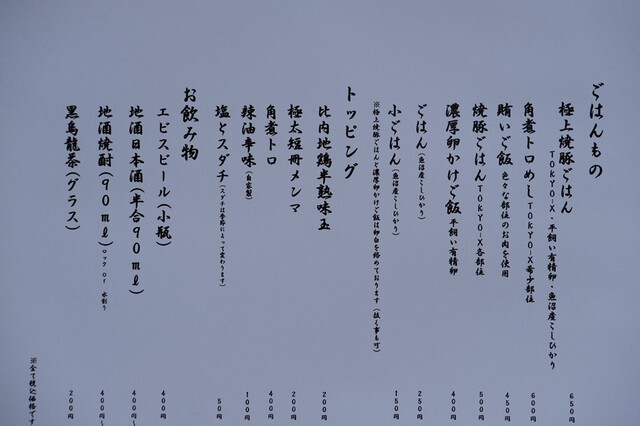 ごはんもの
極上焼豚ごはん
TOKYO-X・平飼い有精卵・魚沼産こしひかり
650円
角煮トロめし TOKYO-X希少部位
600円
賄いご飯 色々な部位のお肉を使用
450円
焼豚ごはん TOKYO-X各部位
500円
濃厚卵かけご飯 平飼い有精卵
400円
ごはん(魚沼産こしひかり)
250円
小ごはん(魚沼産こしひかり)
150円
※極上焼豚ごはんと濃厚卵かけご飯は卵白を絡めております(抜く事も可)
トッピング
比内地鶏半熟味玉
200円
極太短冊メンマ
200円
角煮トロ
400円
辣油辛味(自家製)
100円
塩とスダチ(スダチは季節によって変わります)
50円
お飲み物
エビスビール(小瓶)
400円
地酒日本酒(半合90ml)
400円~
地酒焼酎(90ml)ロック or 水割り
400円~
黒烏龍茶(グラス)
200円
※全て税込価格です